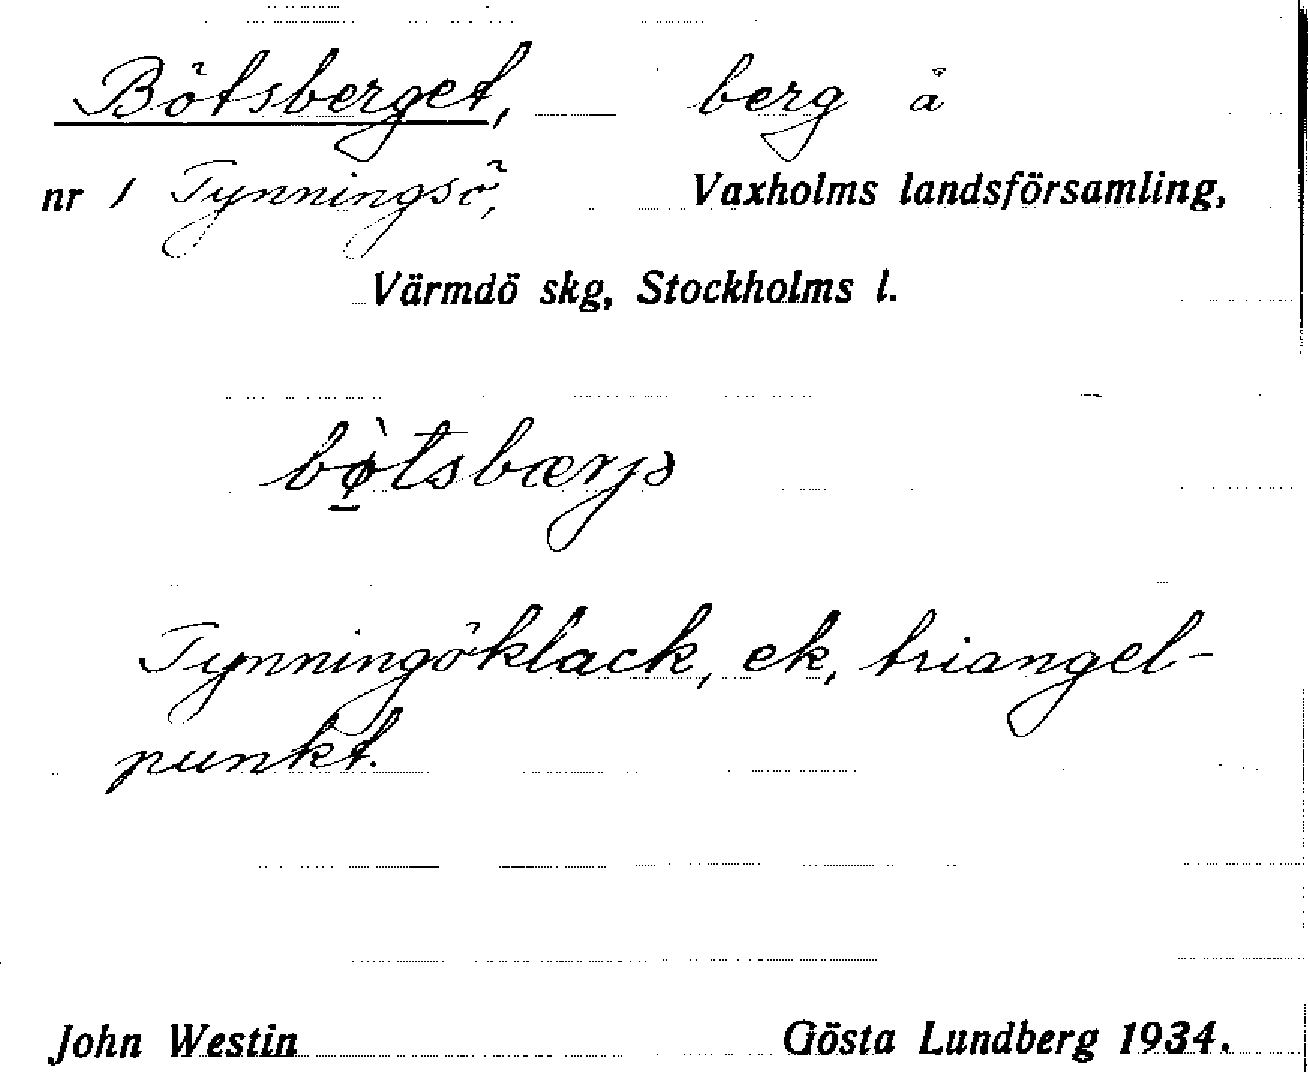 Bötsberget, berg å
nr 1 Tynningsö, Vaxholms landsförsamling,
Värmdö skg, Stockholms l.
bø̱̀tsbærjə
Tynningöklack, ek, triangel-
punkt.
John Westin Gösta Lundberg 1934.